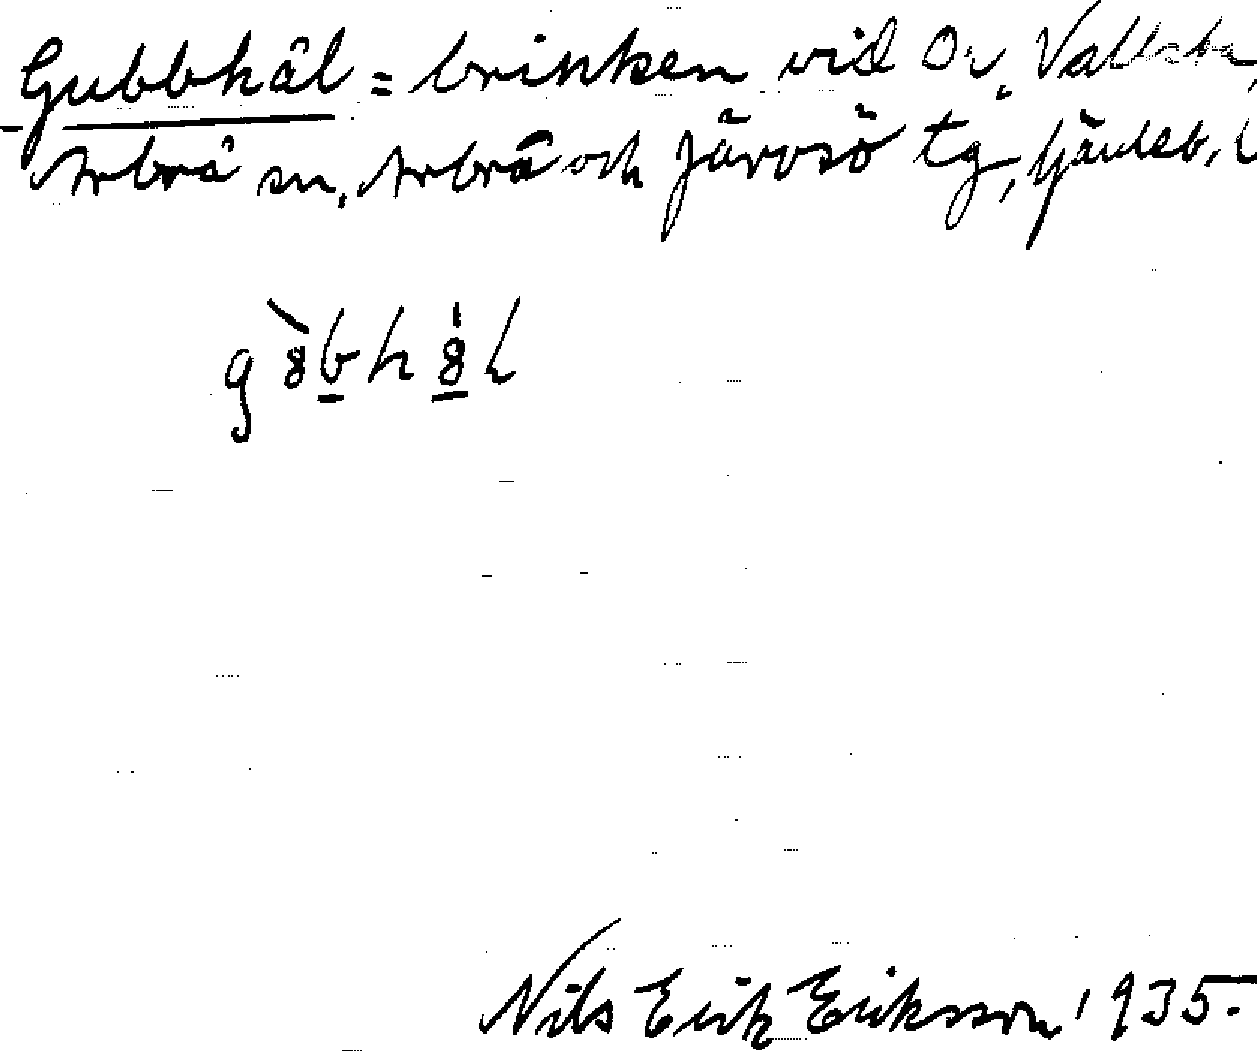 Gubbhål = brinken vid Ov. Vallsta,
Arbrå sn, Arbrå och Järvsö tg, Gävleb. l
Nils Erik Eriksson 1935.